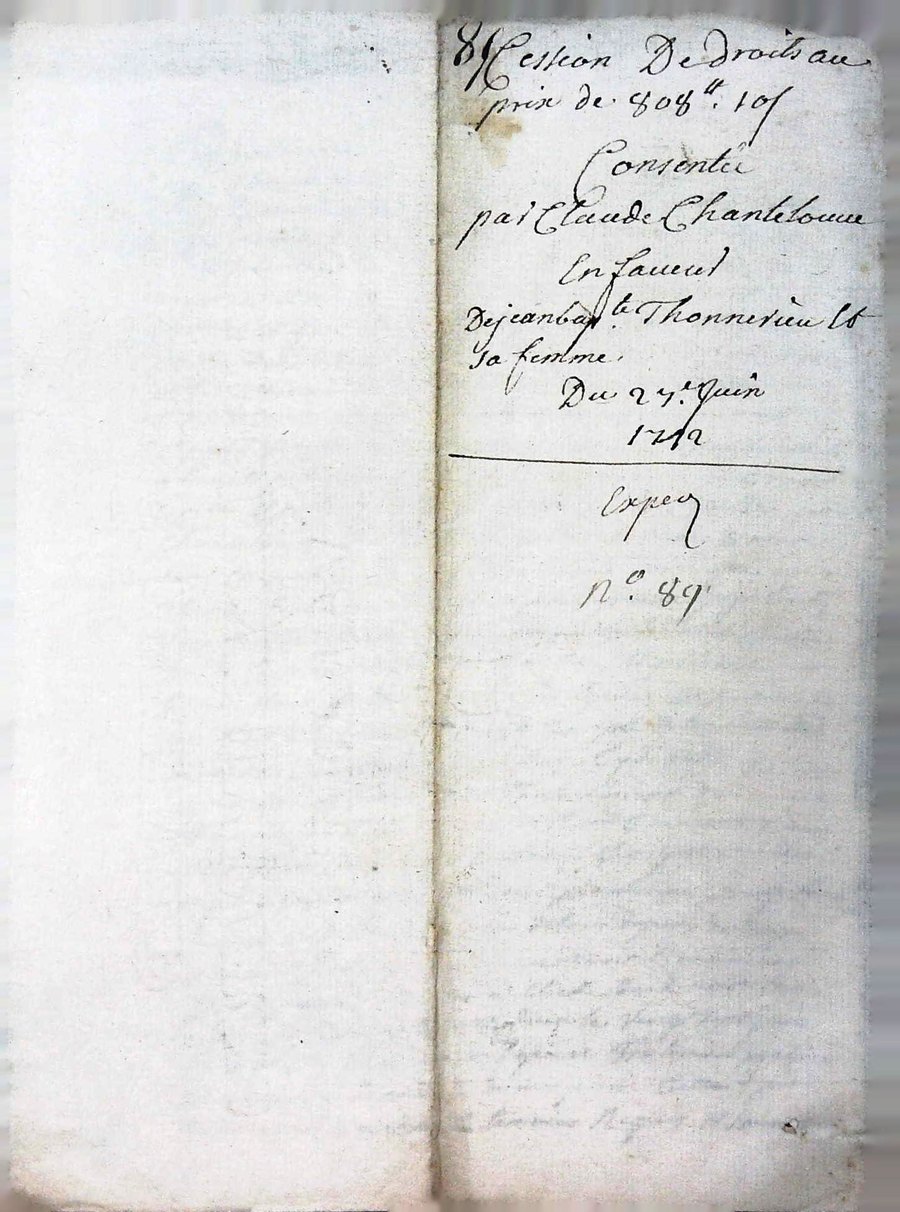 Cession De droits au
prix de 808ᵗᵗ. 10ſ
Consentie
par Claude Chantelouue
En faueur
De jean bapᵗᵉ. Thonnerieu Et
sa femme.
Du 27ᵉ. Juin
1742
Exped
nº. 89